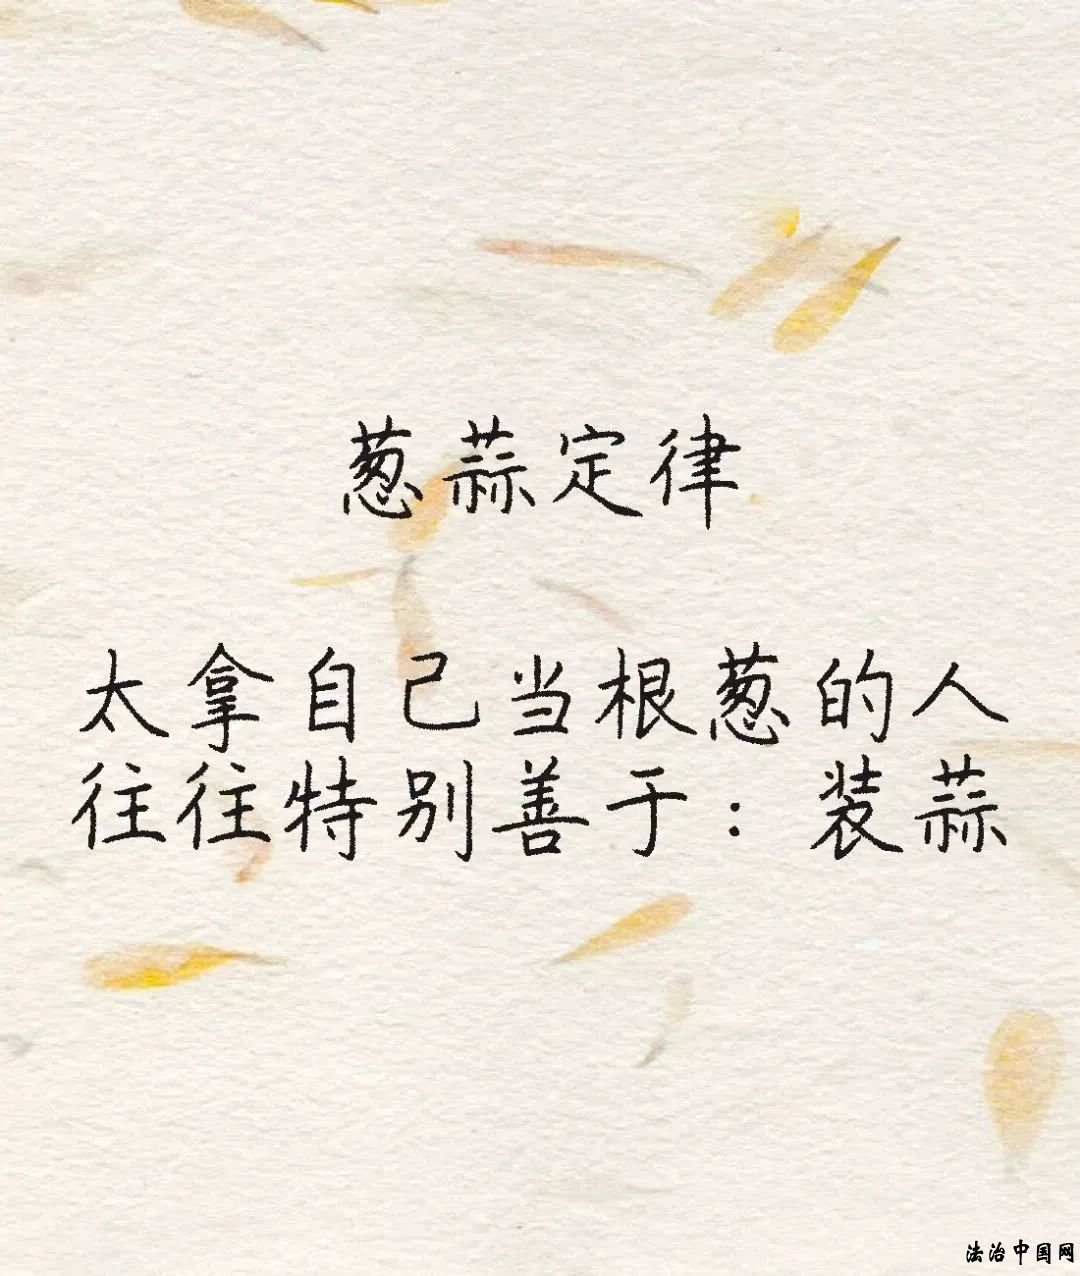 葱蒜定律
太拿自己当根葱的人
往往特别善于：装蒜
法治中国网